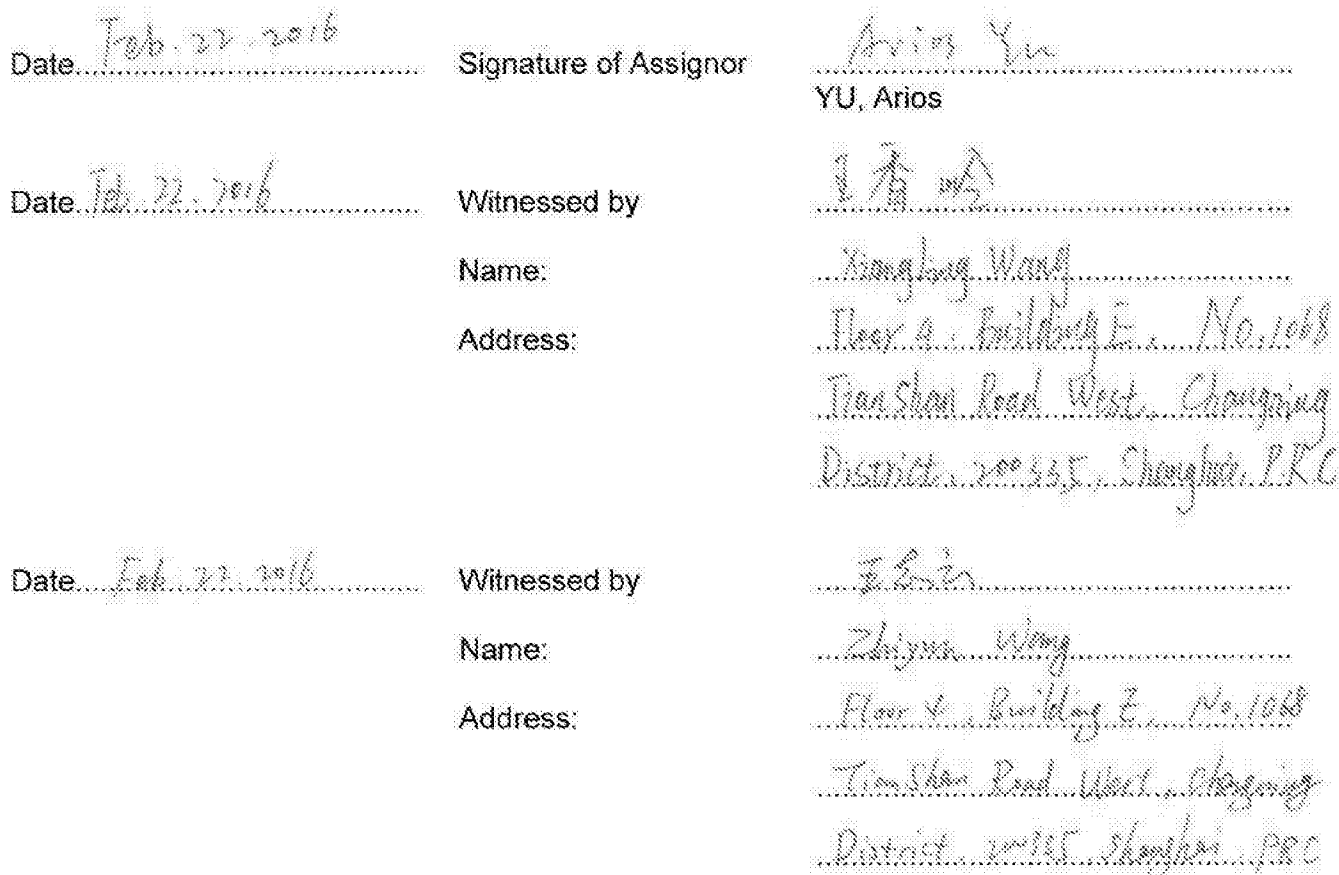 Date Feb. 22. 2016 Signature of Assignor Arios Yu
YU, Arios
Date Feb. 22. 2016 Witnessed by 王香岭
Name: Xiangling Wang
Address: Floor 4, Building E, No. 1068
TianShan Road West, Changning
District, 200335, Shanghai, P.R.C
Date Feb. 22. 2016 Witnessed by 王
Name: Zhiyun Wang
Address: Floor 4, Building E, No. 1068
TianShan Road West, Changning
District 200335 Shanghai PRC